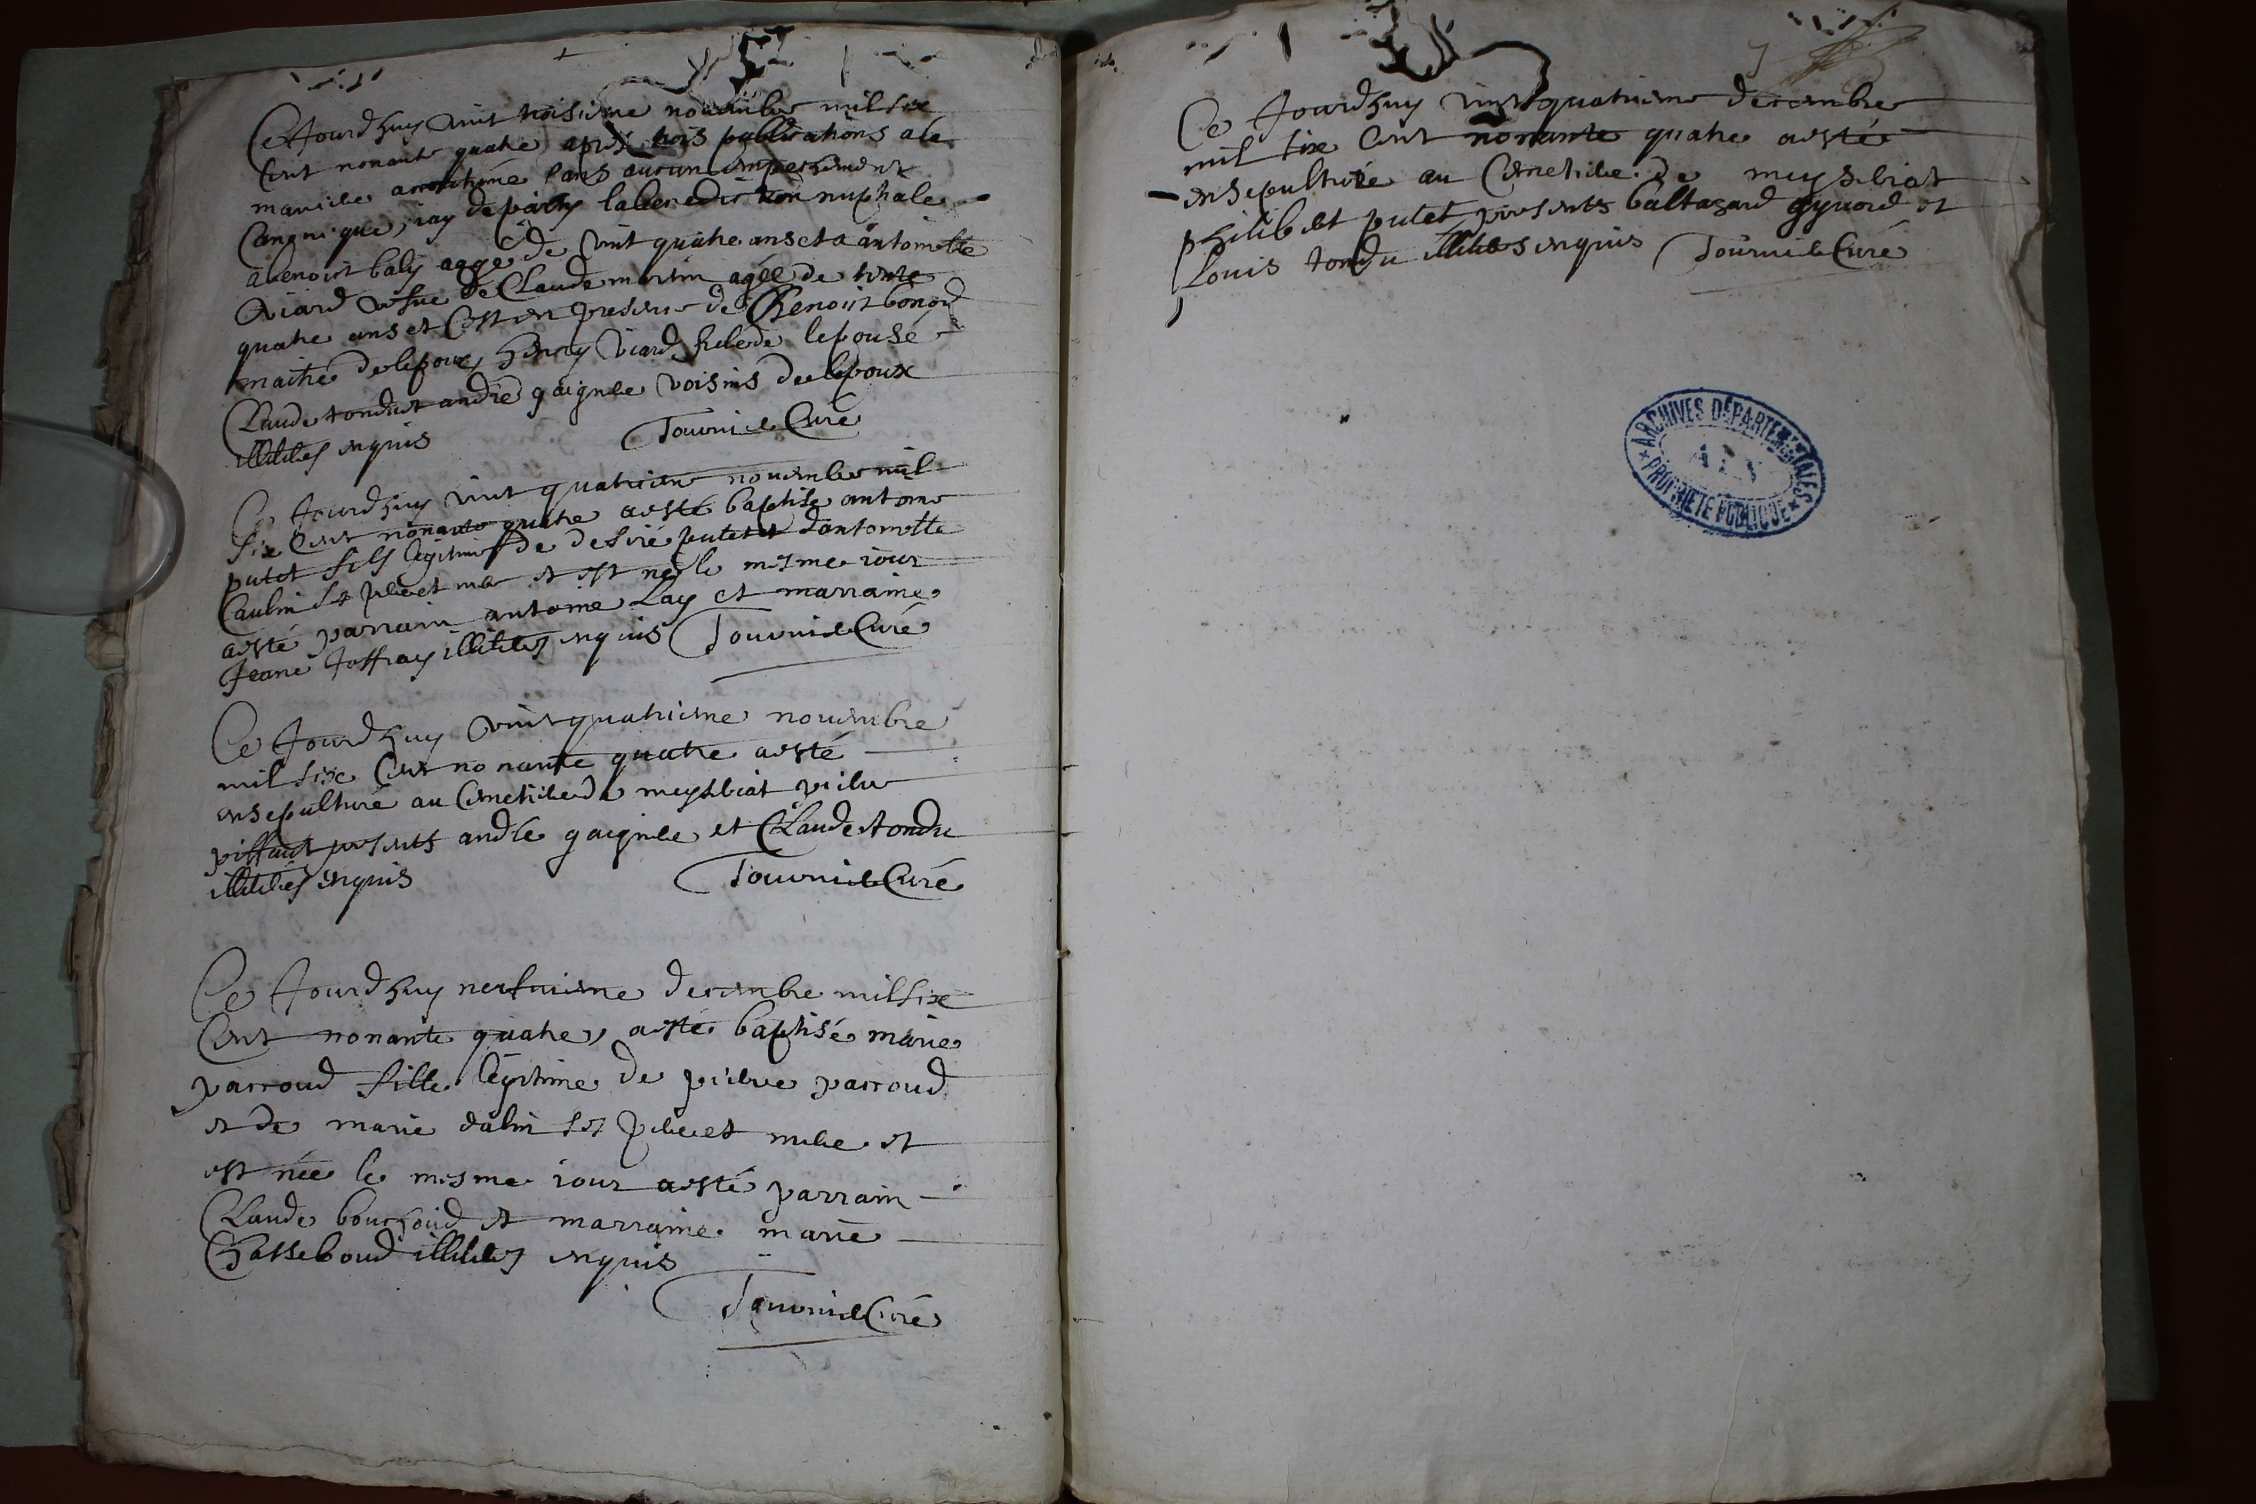 Ce Jourdhuy vint troisieme novembre mil six
cent nonante quatre apres trois publications a la
maniere accoutumé sans aucun empeschement
canonique, iay departy la benediction nuptiale
a benoist baly aagé de vint quatre ans et a antoinette
viard vefue de Claude martin agée de trente
quatre ans et c'est en presence de Benoist bonod
maitre de lepoux, henry viard frere de lepouse
Claude tondu et andré gaignere voisins de lepoux
illiteres enquis Tournier Curé
Ce Jourdhuy vint quatrieme novembre mil
six cent nonante quatre a esté baptise antoine
putet fils legitime de desiré putet et dantoinette
Caulin ses pere et mere et est né le mesme iour
a esté parrain antoine Lay et marraine
Jeane Joffray illiteres enquis Tournier Curé
Ce Jourdhuy vint quatrieme novembre
mil six cent nonante quatre a esté
ensepulturé au Cimetiere de meyseriat pierre
piffaut presents andré gaignere et Claude tondu
illiteres enquis Tournier Curé
Ce Jourdhuy neufvieme decembre mil six
cent nonante quatre, a esté baptisé marie
parroud fille legitime de pierre parroud
et de marie dalin ses pere et mere et
est née le mesme iour a esté parrain
Claude bouchoud et marraine marie
Chasseboud illiteres enquis
Tournier Curé
Ce Jourdhuy vint quatrieme decembre
mil six cent nonante quatre a esté
ensepulturé au Cimetiere de meyseriat
philibert putet presents baltazard gyvord et
Louis tondu illiteres enquis Tournier Curé
ARCHIVES DÉPARTEMENTALES
AIN
PROPRIÉTÉ PUBLIQUE